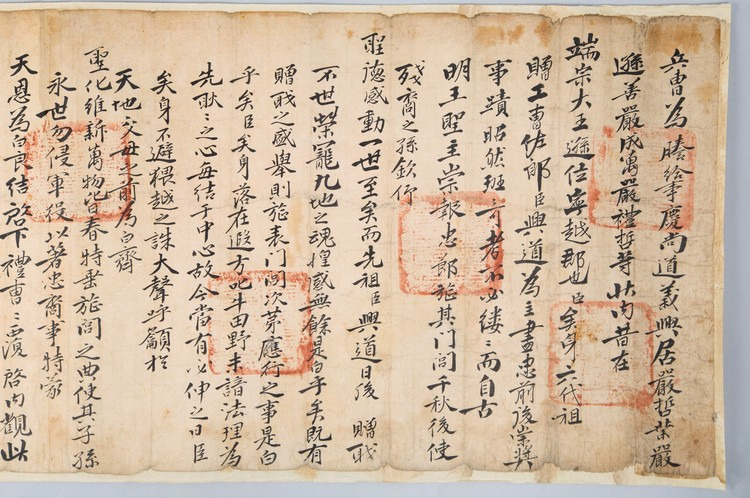 兵曹為謄給事慶尚道義興居嚴哲業嚴
遜善嚴成萬嚴禮哲等狀內昔在
端宗大王遜位寧越郡也臣矣身六代祖
贈工曹佐郎臣興道為主盡忠前後崇奬
事蹟昭然班 者不必縷〻而自古
明王聖主崇報忠節旌其門閭千秋後使
殘裔之孫欽仰
聖德感動一世至矣而先祖臣興道日後 贈職
不世榮寵九地之魂惶感無餘是白乎矣既有
贈職之盛舉則旌表門閭次第應行之事是白
乎矣臣矣身落在遐方叱牛田野未諳法理為
先耿〻之心每結于中心故今當有必伸之日臣
矣身不避猥越之誅大聲呼籲於
天地父母之前為白齊
聖化維新萬物皆春特垂旌閭之典使其子孫
永世勿侵軍役以著忠裔事特蒙
天恩為白良結啓下禮曹〻覆啓內觀此